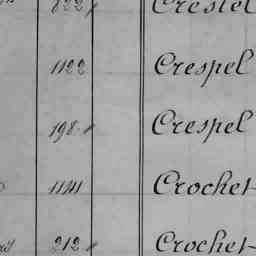 822 Crestel
1122 Crespel
198 Crespel
1141 Crochet
212 Crochet